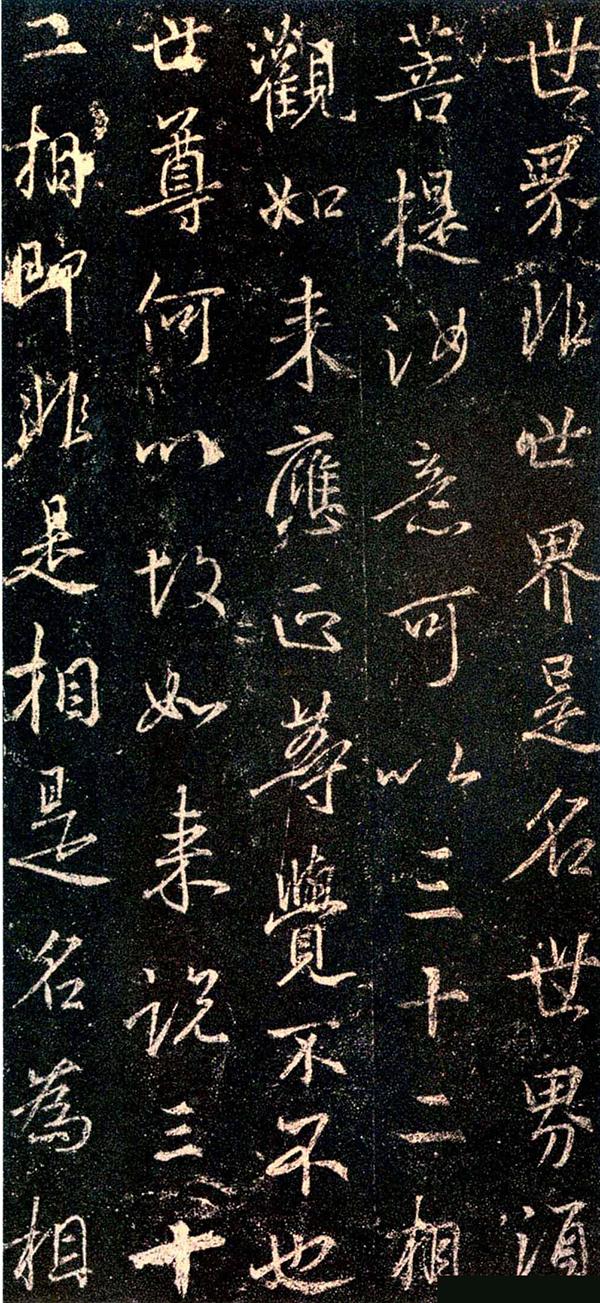 世界非世界是名世界須
菩提汝意可以三十二相
觀如來應正等覺不不也
世尊何以故如來說三十
二相即非是相是名為相